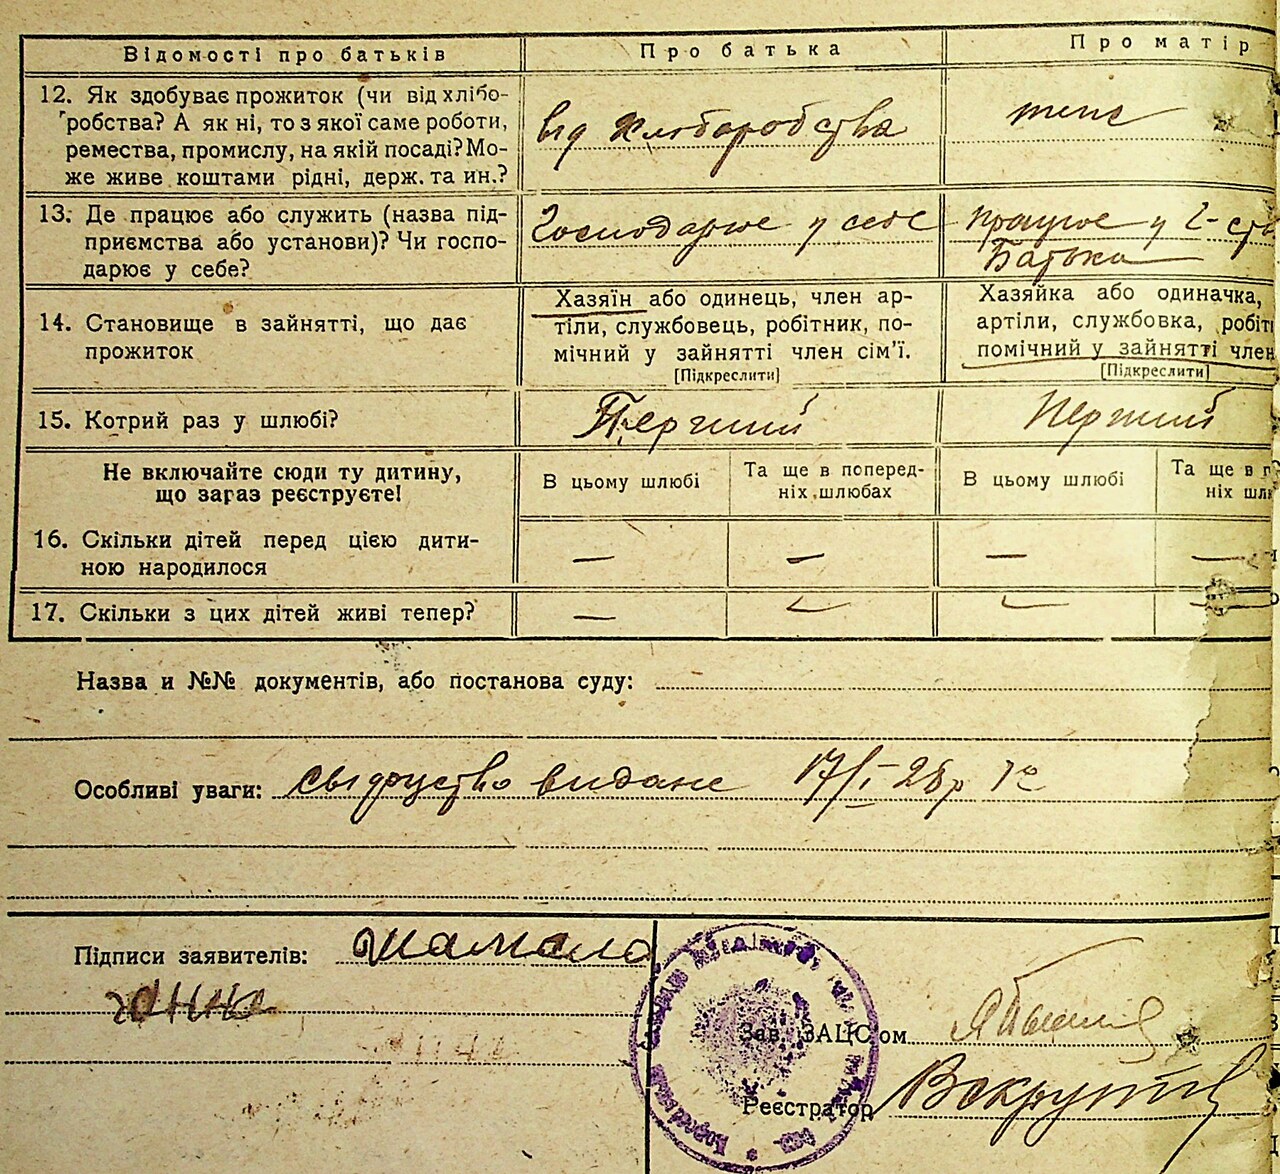 Відомості про батьків
Про батька
Про матір
12. Як здобуває прожиток (чи від хлібо-
робства? А як ні, то з якої саме роботи,
ремества, промислу, на якій посаді? Мо-
же живе коштами рідні, держ. та ин.?
від хлібаробства
теж
13. Де працює або служить (назва під-
приємства або установи)? Чи госпо-
дарює у себе?
Господарює у себе
працює у
Батька
14. Становище в зайнятті, що дає
прожиток
Хазяїн або одинець, член ар-
тіли, службовець, робітник, по-
мічний у зайнятті член сім'ї.
[Підкреслити]
Хазяйка або одиначка,
артіли, службовка, робіт
помічний у зайнятті член
[Підкреслити]
15. Котрий раз у шлюбі?
Перший
Перший
Не включайте сюди ту дитину,
що зараз реєструєте!
В цьому шлюбі
Та ще в поперед-
ніх шлюбах
В цьому шлюбі
Та ще в п
ніх шлю
16. Скільки дітей перед цією дити-
ною народилося
— — — —
17. Скільки з цих дітей живі тепер?
— — — —
Назва и №№ документів, або постанова суду:
Особливі уваги: свідоцтво видане 17/I-28р
Підписи заявителів: Шамало
Зав. ЗАЦС'ом
Реєстратор